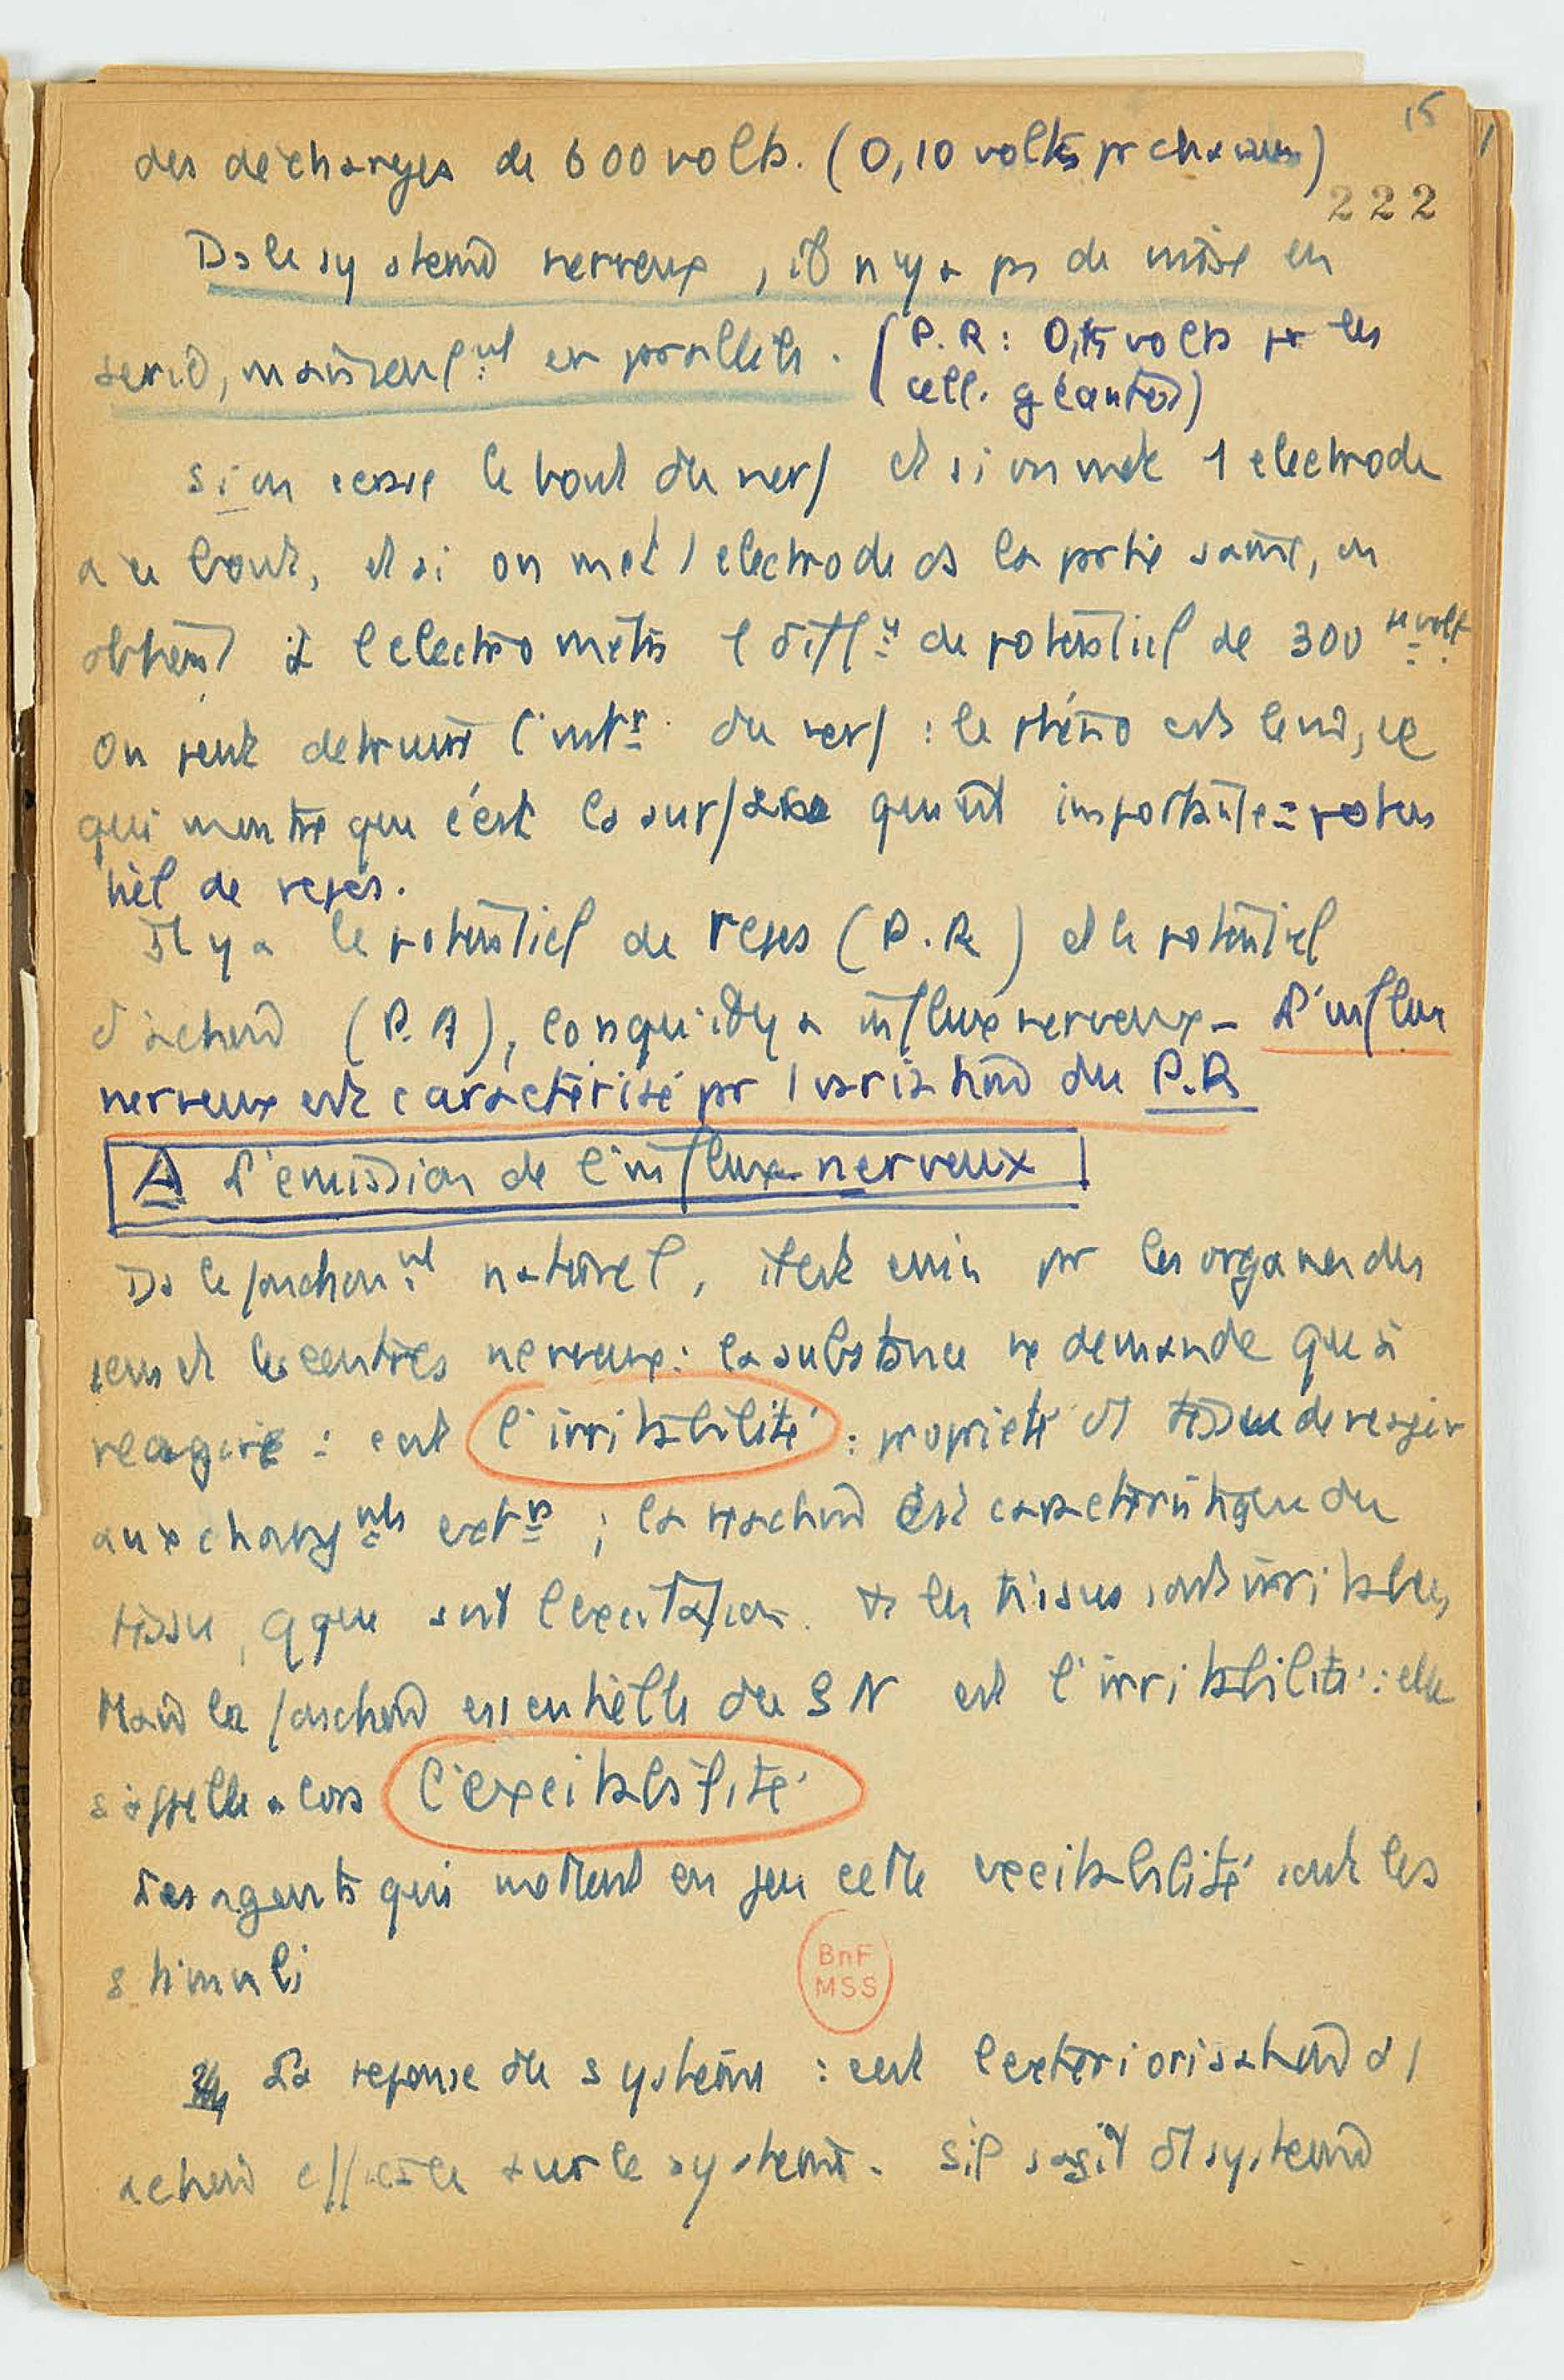 15
des décharges de 600 volts. (0,10 volts pr chacune)
222
Ds le système nerveux, il n'y a pas de mise en
série, mais seulᵗ en parallèle. (P.R : 0,15 volts pr les
cell. géantes)
Si on écrase le bout du nerf et si on met 1 électrode
au bout, et si on met 1 électrode ds la partie saine, on
obtient à l'électromètre 1 diff de potentiel de 300 volt
On peut détruire l'intʳ du nerf : le phéno est le m̂, ce
qui montre que c'est la surface qui est importante = poten
tiel de repos.
Il y a le potentiel de repos (P.R) et le potentiel
d'action (P.A), lorsqu'il y a influx nerveux - L'influx
nerveux est caractérisé pr 1 variation du P.R
A L'émission de l'influx nerveux
Ds le fonctionᵗ naturel, il est émis pr les organes des
sens et les centres nerveux : la substance ne demande qu'à
réagir : c'est l'irritabilité : propriété d1 tissu de réagir
aux changᵗˢ extʳˢ ; la réaction est caractéristique du
tissu, qque soit l'excitation. Ts les tissus sont irritables,
Mais la fonction essentielle du SN est l'irritabilité : elle
s'appelle alors l'excitabilité
Les agents qui mettent en jeu cette excitabilité sont les
stimuli
La réponse du système : c'est l'extériorisation d'1
action effectuée sur le système. S'il s'agit d'1 système
BnF
MSS